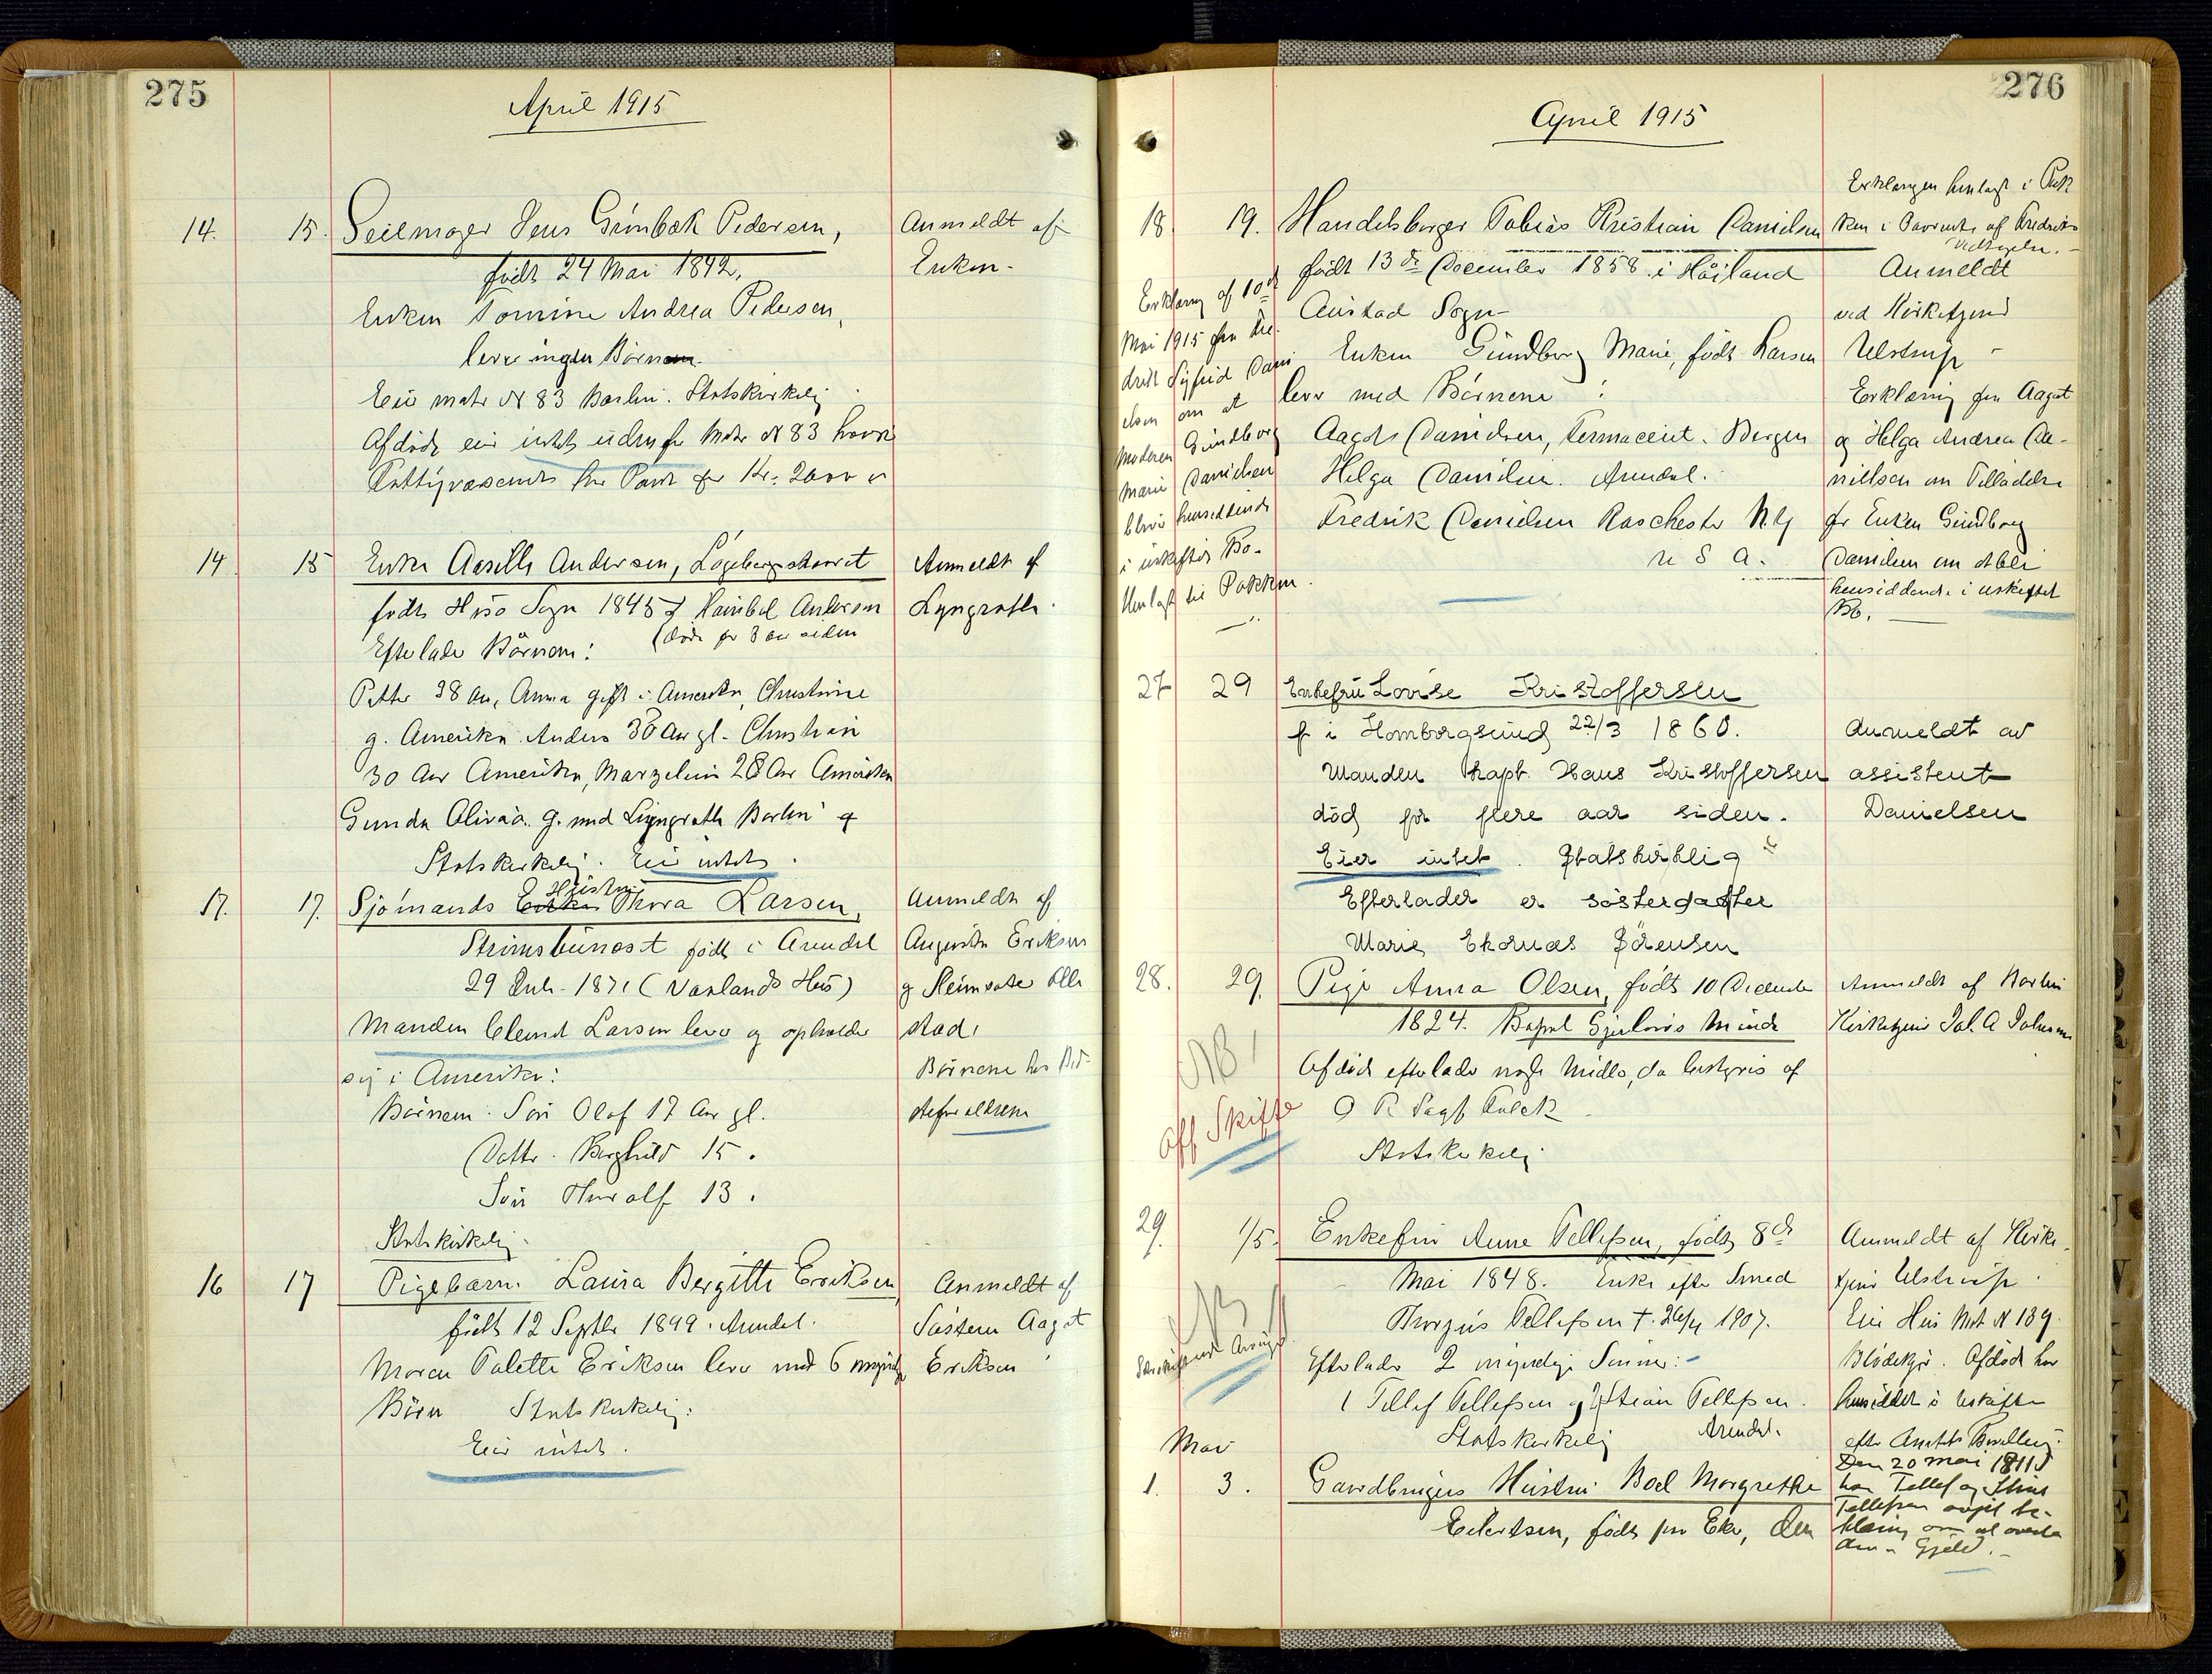 275
April 1915
14. 15. Seilmager Jens Grimbek Pedersen,
født 24 Mai 1842.
Enken Tomine Andrea Pedersen,
lever ingen Børn
Eier matr N 83 Barbu. Statskirkelig
Afdøde eier intet udenfor Matr N 83 hvori
Fattigvæsenet har Pant for Kr. 2000
Anmeldt af
Enken.
14 15 Enke Aasille Andersen,
født Hisø Sogn 1845 Andersen
(død for 3 aar siden
Efterlader Børnene:
Petter 38 Aar, Anna gift i Amerika, Christine
g. Amerika. Anders 36 Aar gl. Christian
30 Aar Amerika, Marzelius 28 Aar Amerika
Gunda g. med Lyngroth Barbu
Statskirkelig. Eier intet.
Anmeldt af
Lyngroth.
17. 17. Sjømands Hustru Thora Larsen,
Strømsbunæset født i Arendal
29 Juli 1871 (Vaklands Hus)
Manden Clemet Larsen lever og opholder
sig i Amerika:
Børnene: Søn Olaf 17 Aar gl.
Datter. Borghild 15.
Søn Thoralf 13.
Statskirkelig.
Anmeldt af
Eriksen
g
stad,
Børnene hos Bed-
steforældrene
16 17 Pigebarn Laura Bergitte Eriksen
født 12 Septbr 1899. Arendal.
Moren Talette Eriksen lever med 6 myndige
Børn Statskirkelig:
Eier intet.
Anmeldt af
Søsteren Aagot
Eriksen
276
April 1915
18 19. Handelsborger Tobias Kristian Danielsen
født 13de December 1858 i Høiland
Austad Sogn
Enken Gundborg Marie, født Larsen
lever med Børnene:
Aagot Danielsen, farmaceut. Bergen
Helga Danielsen. Arendal.
Fredrik Danielsen Rochester N.Y
U S A.
Erklæring af 10de
Mai 1915 fra Fre-
drik Sigfrid Dani
elsen om at
Moderen Gundborg
Marie Danielsen
blir hensiddende
i uskiftet Bo.
Henlagt til Pakken.
Erklæringen henlagt i Pak
ken
Anmeldt
ved Kirketjener
Ulstrup
Erklæring fra Aagot
og Helga Andrea Da-
nielsen om Tilladelse
for Enken Gundborg
Danielsen om at bli
hensiddende i uskiftet
Bo.
27 29 Enkefru Lovise Kristoffersen
f i Homborgsund 22/3 1860.
Manden Kapt. Hans Kristoffersen
død for flere aar siden.
Eier intet. Statskirkelig
Efterlader er søsterdatter
Marie Ekornæs Sørensen
Anmeldt av
assistent
Danielsen
28. 29. Pige Anna Olsen, født 10 December
1824. Minde
Afdøde efterlader noget Midler, da bestyres af
O
Statskirkelig.
NB!
Off Skifte
Anmeldt af Barbu
Kirketjener Joh. A Johnsen
29. 1/5. Enkefru Anne Tellefsen, født 8de
Mai 1848. Enke efter Smed
Thorgius Tellefsen †. 26/4 1907.
Efterlader 2 myndige Sønner:-
1 Tellef Tellefsen og Stian Tellefsen.
Statskirkelig Arendal.
NB
Anmeldt af Kirke
tjener Ulstrup.
Eier Hus Mat N 139
Blødekjær. Afdøde har
hensiddet i Uskiftet
efter Amtets Bevilling.
Den 20 mai 1915
har Tellef og Stian
Tellefsen avgit er-
klæring om at overta
arv & Gjeld.
Mai
1. 3. Gaardbrugers Hustru Boel Margrethe
Eilertsen, født paa Eke, den